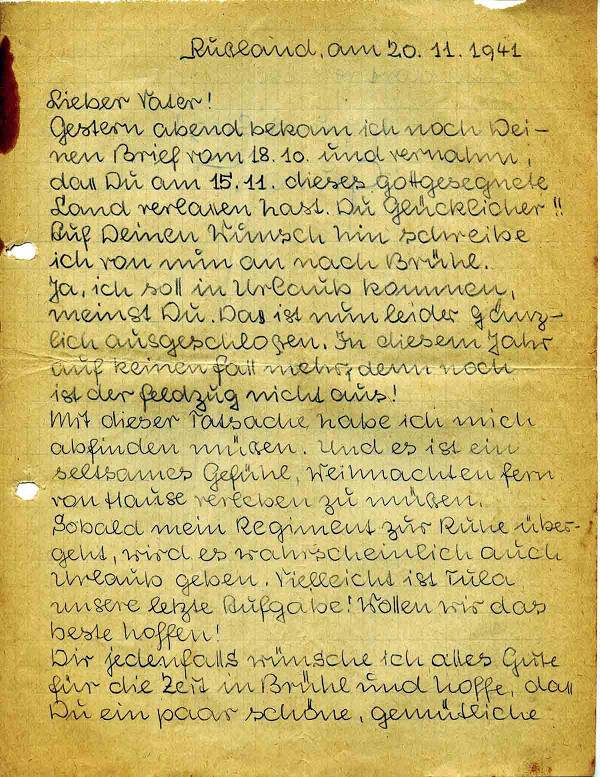 Rußland, am 20.11.1941
Lieber Vater!
Gestern abend bekam ich noch Dei-
nen Brief vom 18.10. und vernahm,
daß Du am 15.11. dieses gottgesegnete
Land verlassen hast. Du Glücklicher!!
Auf Deinen Wunsch hin schreibe
ich von nun an nach Brühl.
Ja, ich soll in Urlaub kommen,
meinst Du. Das ist nun leider gänz-
lich ausgeschloßen. In diesem Jahr
auf keinen fall mehr, denn noch
ist der feldzug nicht aus!
Mit dieser Tatsache habe ich mich
abfinden müßen. Und es ist ein
seltsames Gefühl, Weihnachten fern
von Hause verleben zu müßen.
Sobald mein Regiment zur Ruhe über-
geht, wird es wahrscheinlich auch
Urlaub geben. Vielleicht ist Tula
unsere letzte Aufgabe! Wollen wir das
beste hoffen!
Dir jedenfalls wünsche ich alles Gute
für die Zeit in Brühl und hoffe, daß
Du ein paar schöne, gemütliche